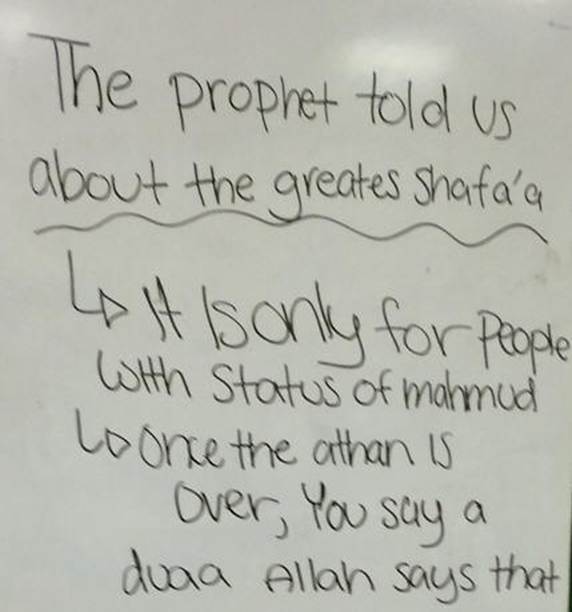 The prophet told us
about the greates Shafa'a
↳ It Is only for People
With Status of mahmud
↳ Once the athan Is
Over, You say a
duaa Allah says that